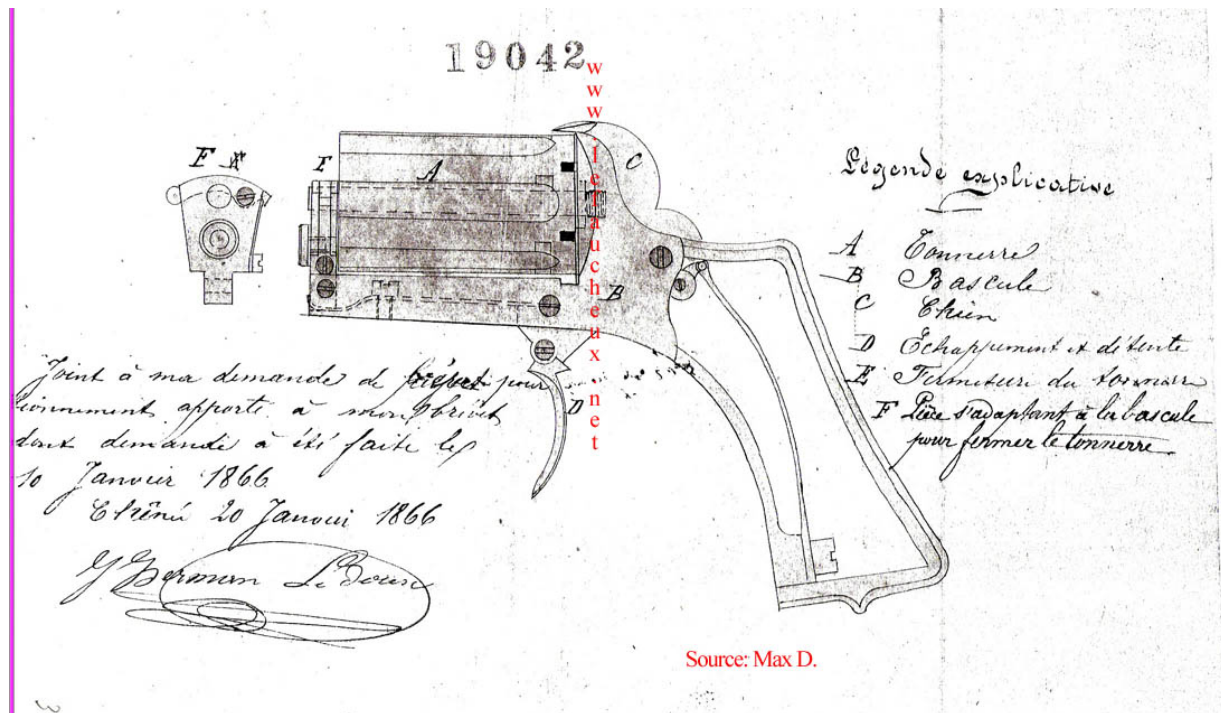 19042
www.lefaucheux.net
F
F
A
C
B
D
Légende explicative
A Tonnerre
B Bascule
C Chien
D Echappement et détente
E Fermeture du tonnerre
F Pièce s'adaptant à la bascule
pour fermer le tonnerre
Joint à ma demande de pour
apporté à mon brevet
dont demande à été faite le
10 Janvier 1866
Chênée 20 Janvier 1866
Source: Max D.